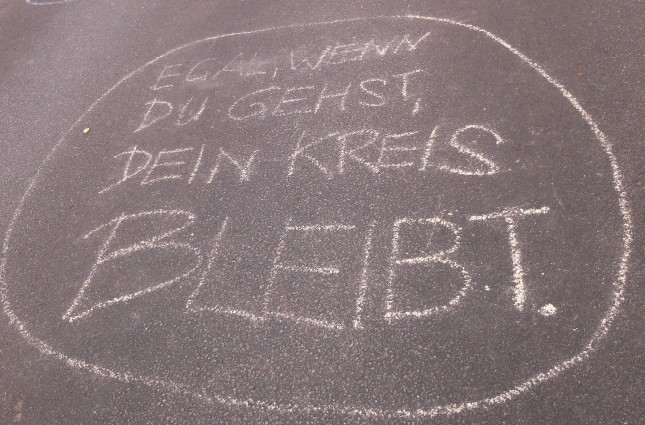 EGAL, WENN
DU GEHST,
DEIN KREIS
BLEIBT.